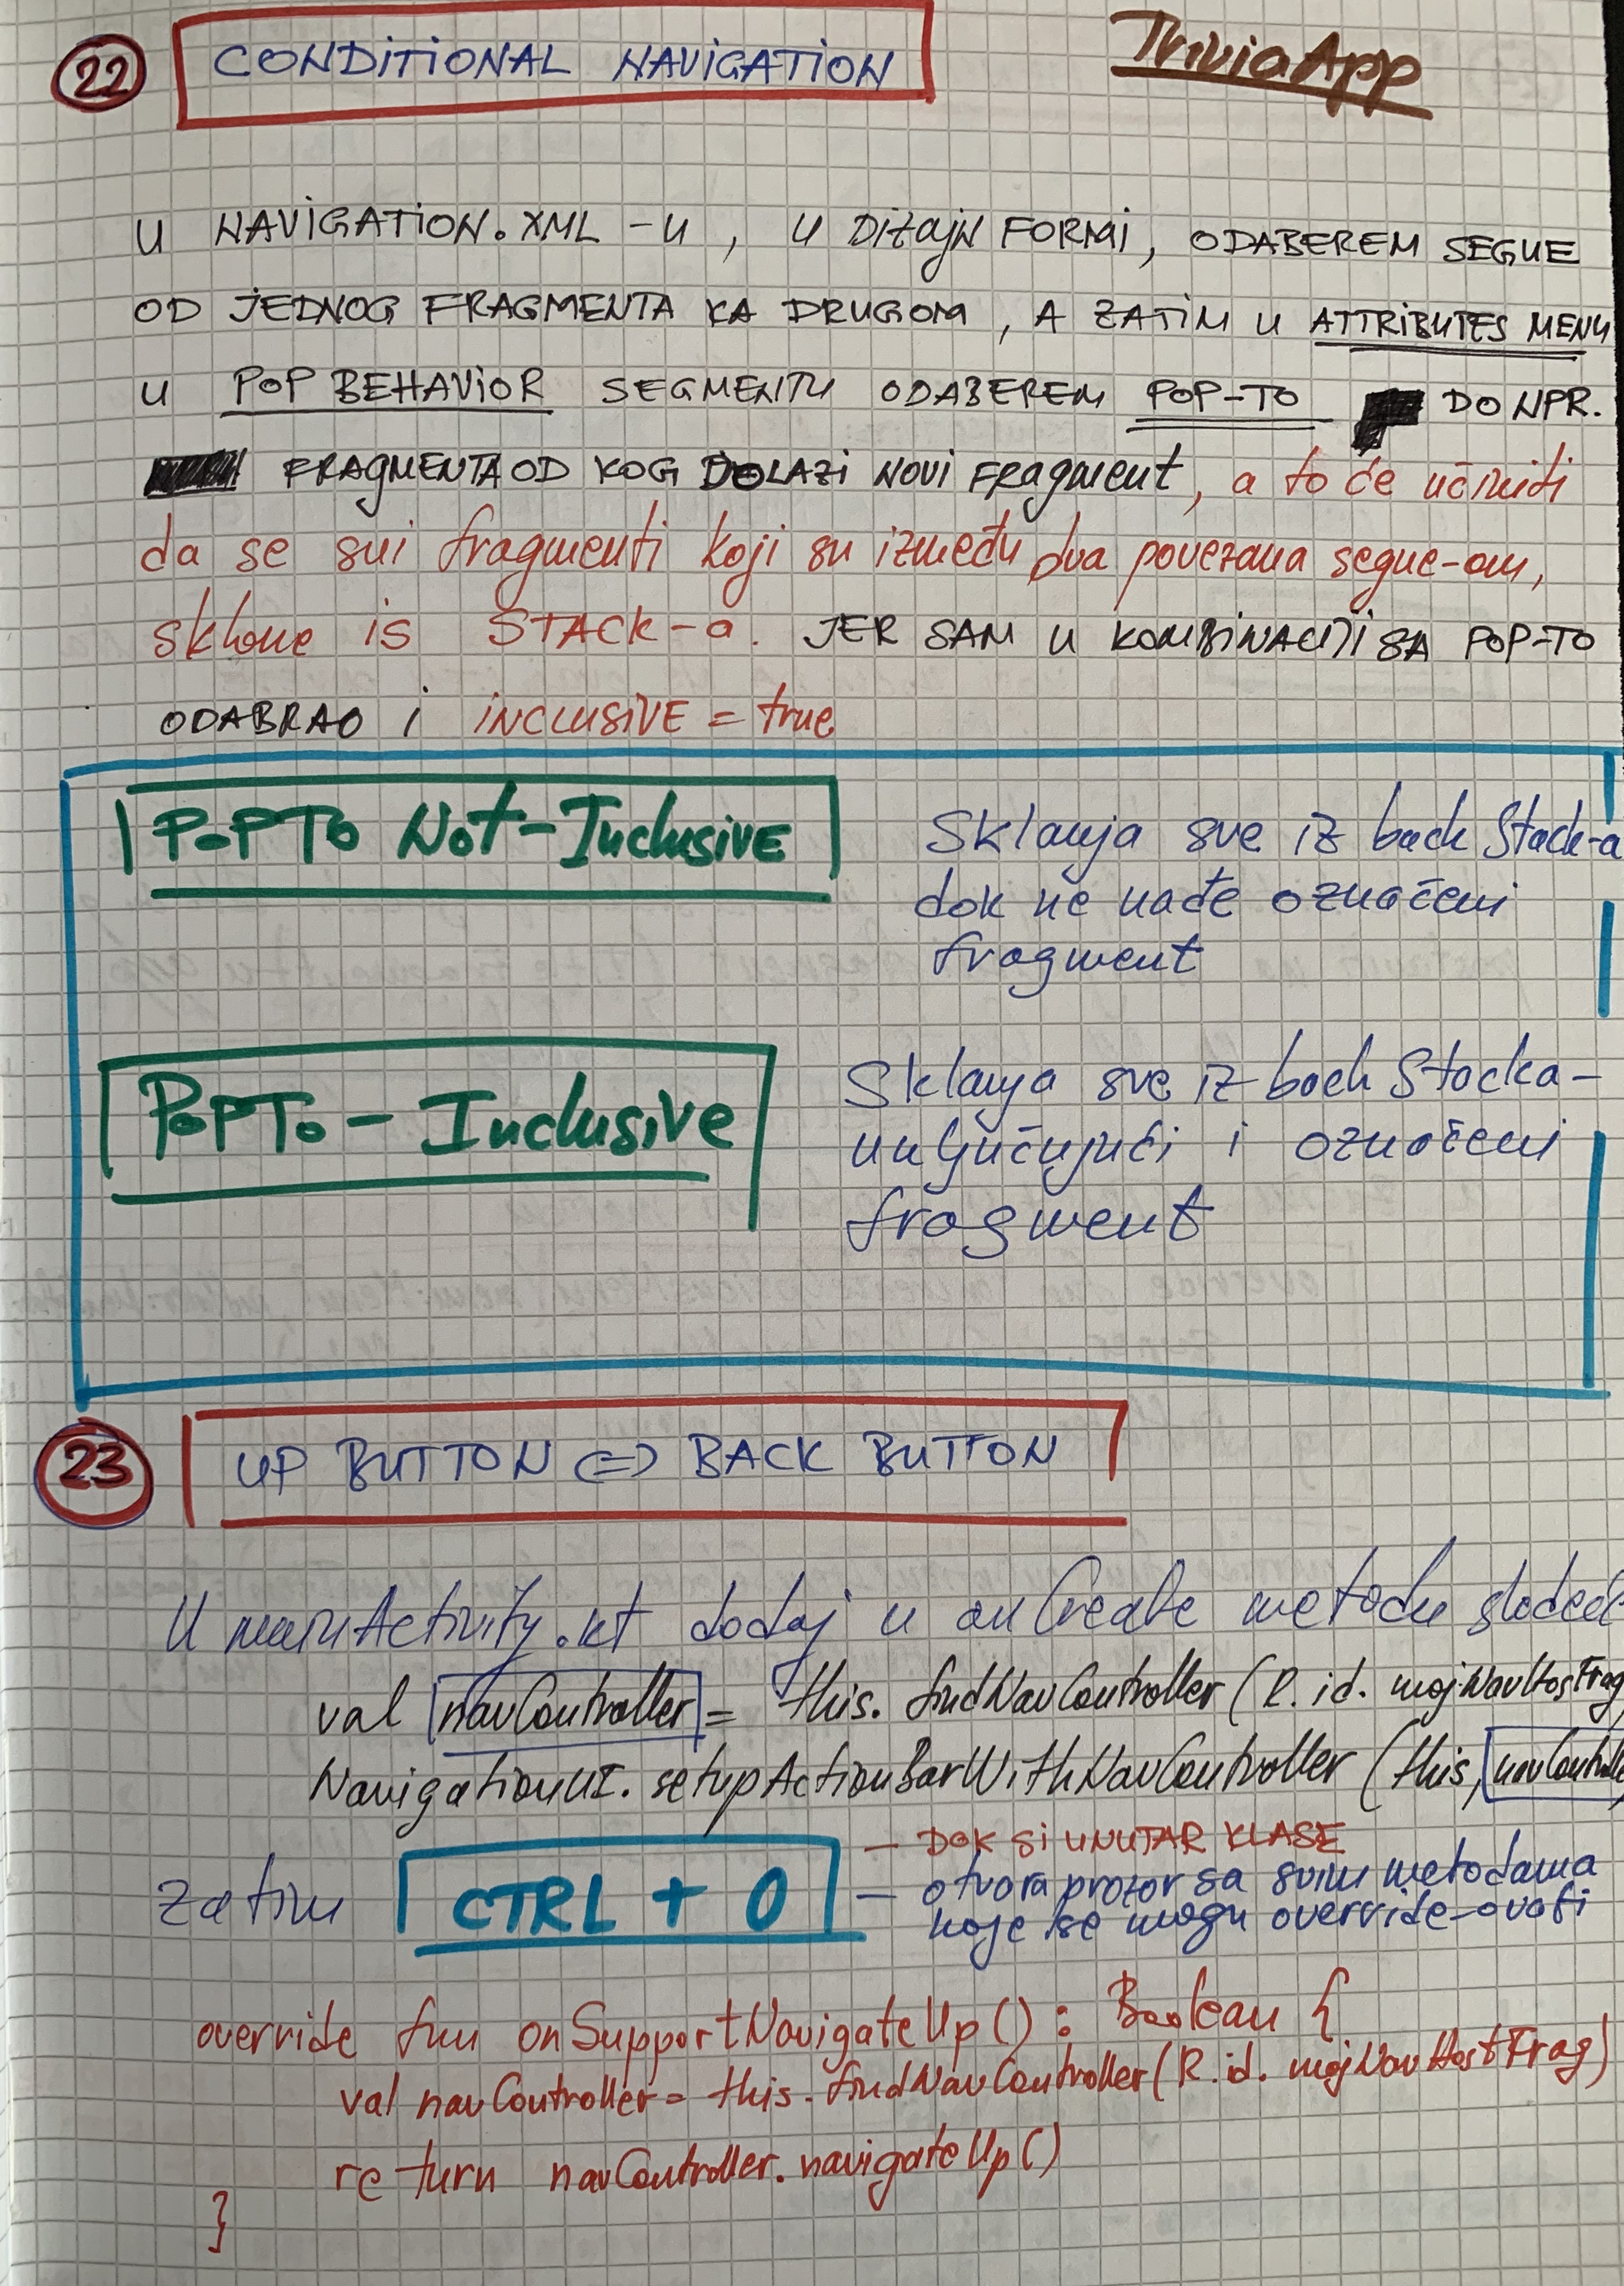 22 CONDITIONAL NAVIGATION TriviaApp
U NAVIGATION.XML-U, U Dizajn FORMI, ODABEREM SEGUE
OD JEDNOG FRAGMENTA KA DRUGOM, A ZATIM U ATTRIBUTES MENU
U POP BEHAVIOR SEGMENTU ODABEREM POP-TO DO NPR.
FRAGMENTA OD KOG DOLAZI NOVI FRagment, a to će učiniti
da se svi fragmenti koji su između dva povezana segue-om,
sklone is STACK-a. JER SAM U KOMBINACIJI SA POP-TO
ODABRAO i INCLUSIVE = true
POPTO Not-Inclusive
Sklanja sve iz back Stack-a
dok ne nađe označeni
fragment
POPTo - Inclusive
Sklanja sve iz back Stacka-
uključujući i označeni
fragment
23 UP BUTTON <=> BACK BUTTON
U mainActivity.kt dodaj u onCreate metodu
val navController = this.findNavController(R.id.mojNavHostFrag
NavigationUI.setupActionBarWithNavController(this,
zatim CTRL + O
- DOK SI UNUTAR KLASE
- otvora prozor sa svim metodama
koje se mogu override-ovati
override fun onSupportNavigateUp(): Boolean {
val navController = this.findNavController(R.id.mojNavHostFrag)
return navController.navigateUp()
}